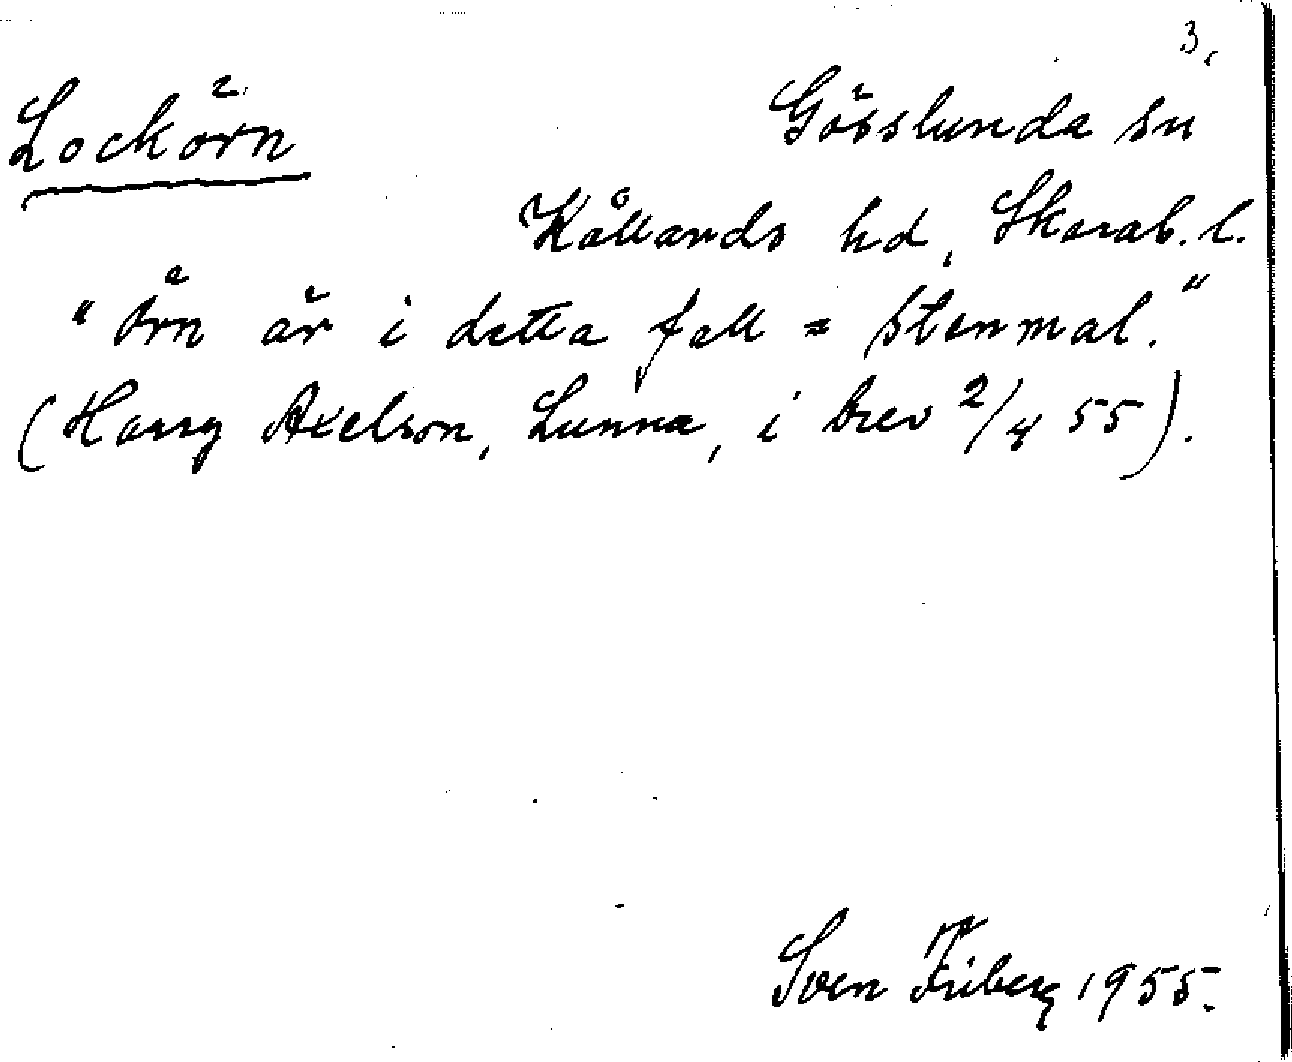 3.
Lockörn
Gösslunda sn
Kållands hd, Skarab. l.
"Örn är i detta fall = stenmal."
(Harry Axelson, Lunna, i brev 2/4 55).
Sven Friberg 1955.